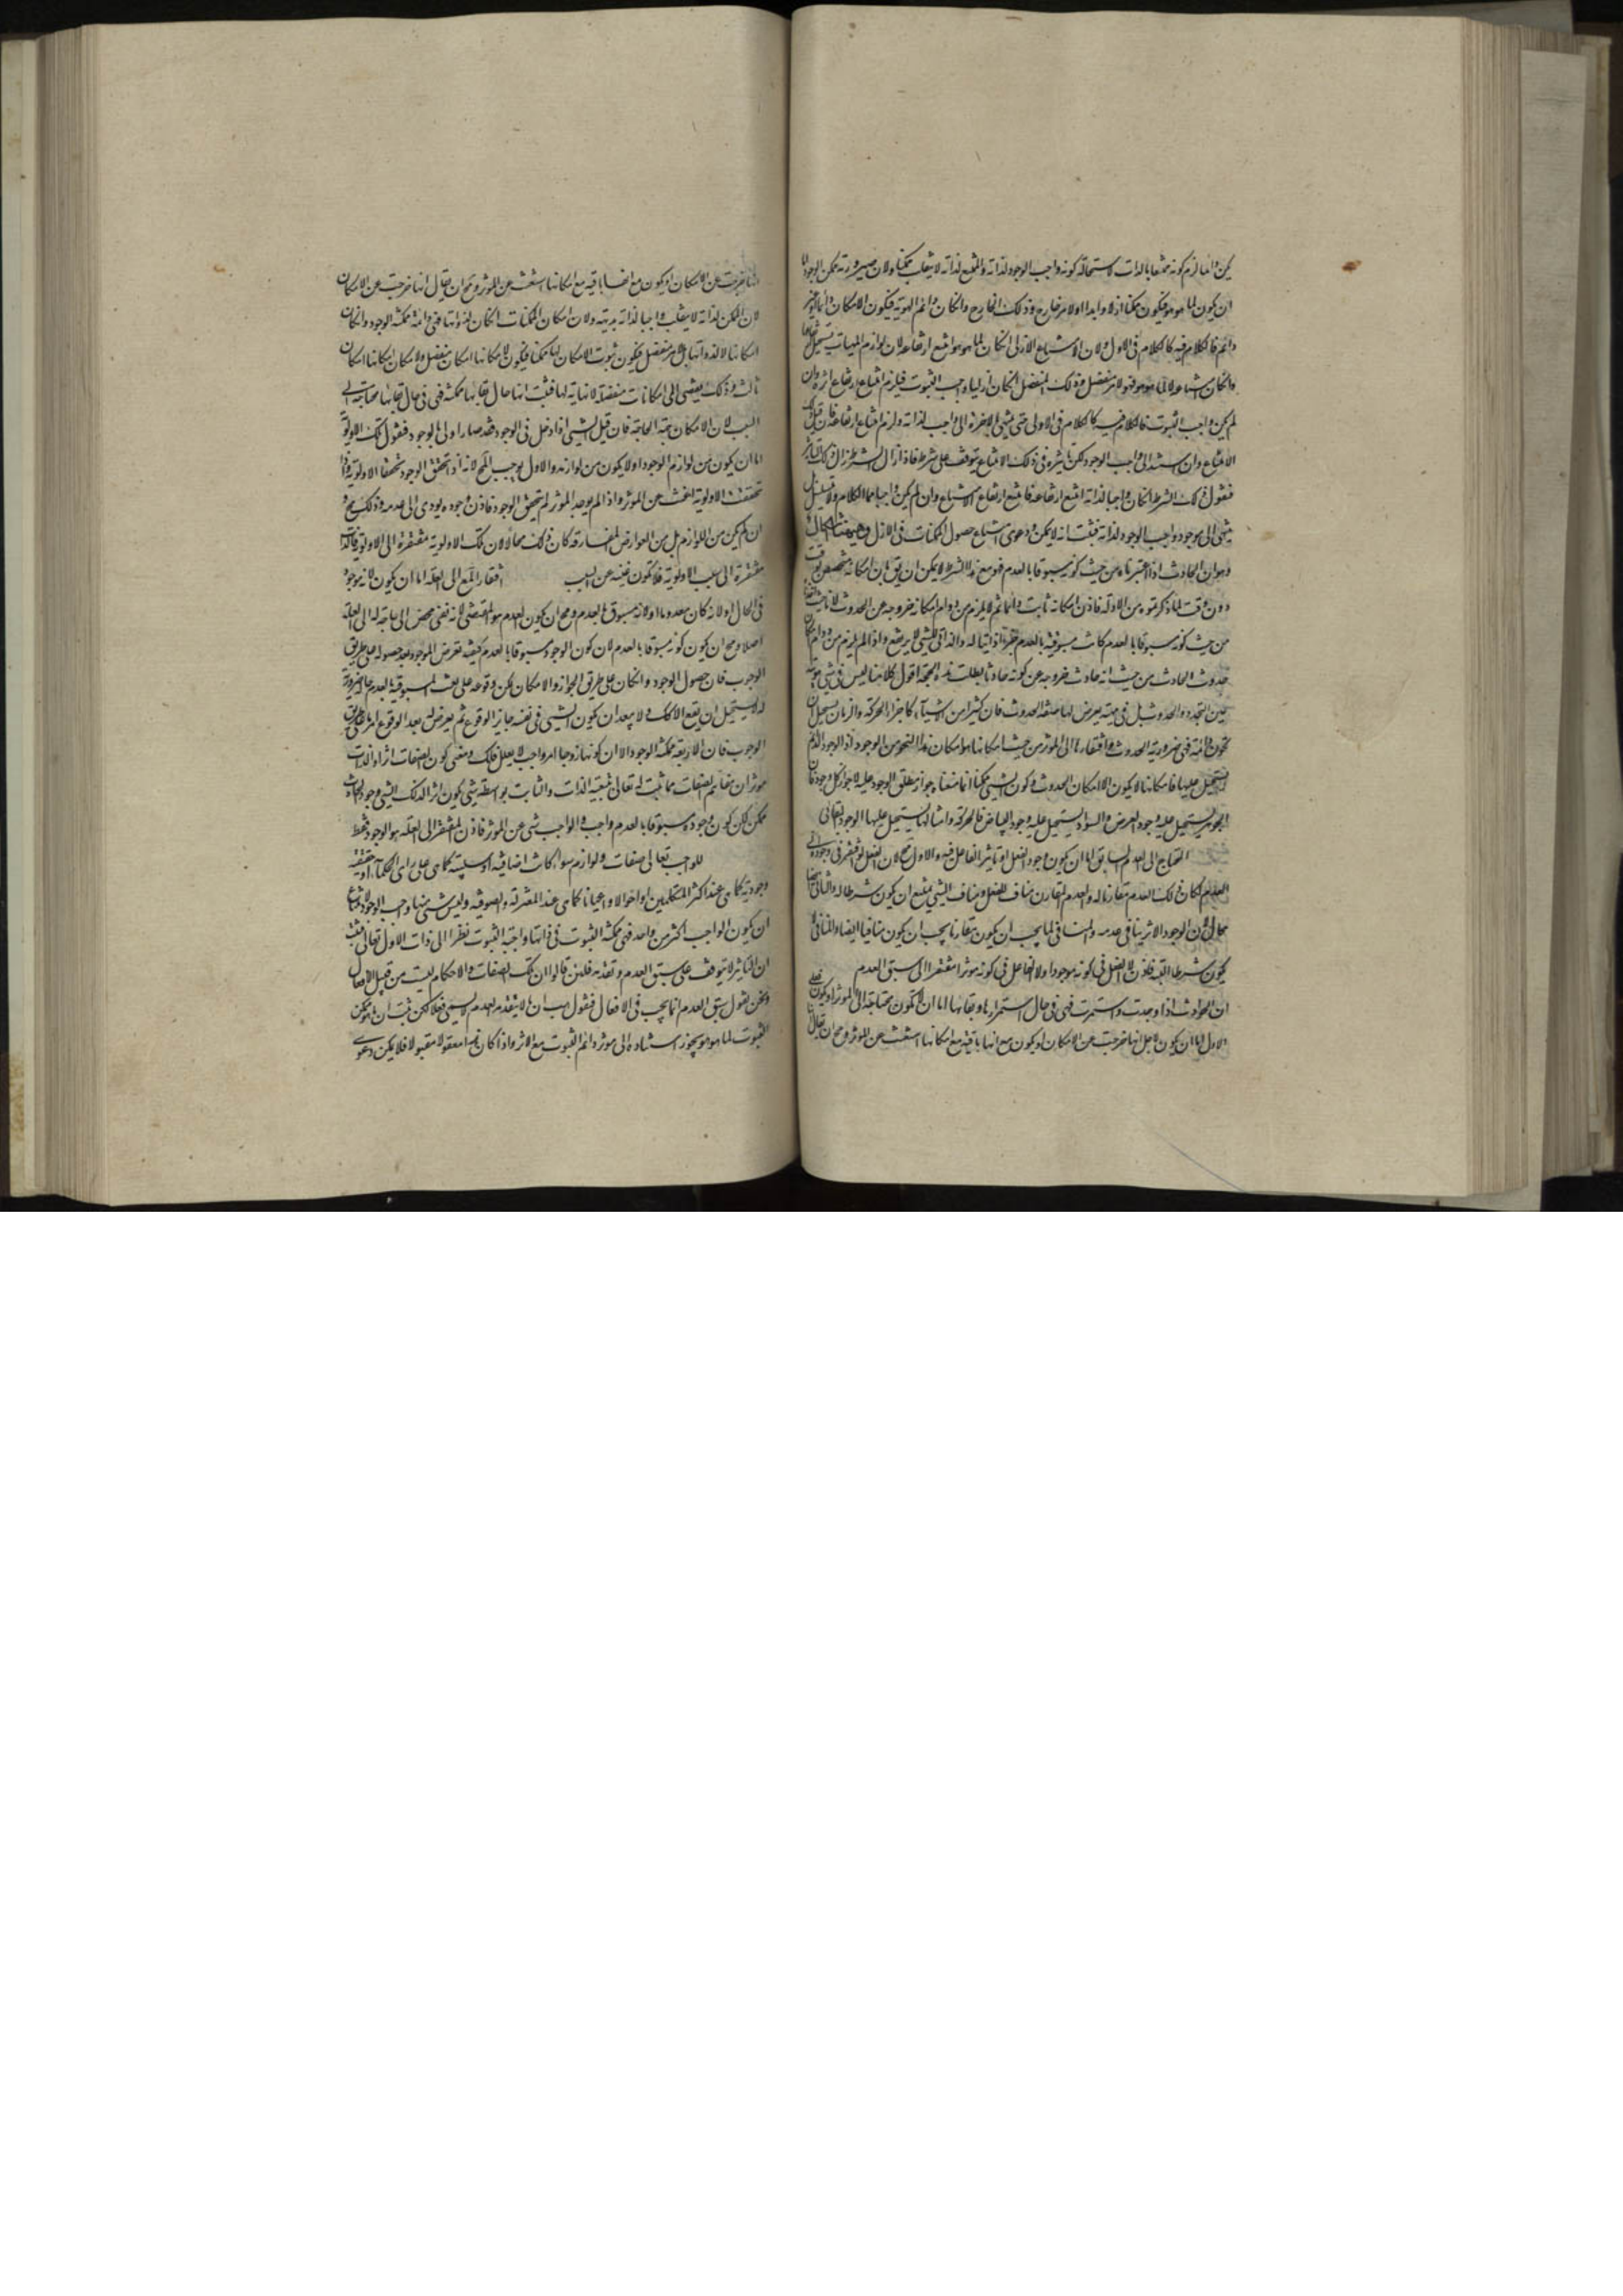 يكن دائما لزم كونه ممتنعا بالذات لاستحالة كونه واجب الوجود لذاته والممتنع لذاته لا ينقلب ممكنا ولان صيرورته ممكن الوجود اما
ان يكون لما هو هو فيكون ممكنا ازلا وابدا او لامر خارج وذلك الخارج ان كان دائم الهوية فيكون الامكان دائما وان كان غير
دائم فالكلام فيه كالكلام فى الاول ولان الامتناع الازلى ان كان لما هو هو امتنع ارتفاعه لان لوازم الماهيات يستحيل
وان كان امتناعه لا لما هو هو فهو لامر منفصل وذلك المنفصل ان كان ازليا واجب الثبوت فيلزم امتناع ارتفاع اثره وان
لم يكن واجب الثبوت فالكلام فيه كالكلام فى الاولى حتى ينتهى بالاخرة الى واجب لذاته ولزم امتناع ارتفاعه فان قيل
الامتناع وان استند الى واجب الوجود لكن تاثيره فى ذلك الامتناع يتوقف على شرط فاذا زال الشرط زال ذلك التاثير
فنقول ذلك الشرط ان كان واجبا لذاته امتنع ارتفاعه فامتنع ارتفاع الامتناع وان لم يكن واجبا عاد الكلام ولا يتسلسل بل
ينتهى الى موجود واجب الوجود لذاته فثبت انه لا يمكن دعوى امتناع حصول الممكنات فى الازل وههنا اشكال
وهو ان الحادث اذا اعتبرناه من حيث كونه مسبوقا بالعدم فهو مع هذا الشرط لا يمكن ان يق ان امكانه متخصص بوقت
دون وقت لما ذكرتموه من الادلة فاذن امكانه ثابت دائما ثم لا يلزم من دوام امكانه خروجه عن الحدوث لانا حيث
من حيث كونه مسبوقا بالعدم كانت مسبوقيته بالعدم جزءا ذاتيا له والذاتى للشى لا يرتفع واذا لم يلزم من دوام امكان
حدوث الحادث من حيث انه حادث خروجه عن كونه حادثا بطلت هذه الحجة اقول كلامنا ليس فى شى هويته
عين التجدد والحدوث بل فى ماهية يعرض لها صفة الحدوث فان كثيرا من الاشياء كاجزاء الحركة والزمان يستحيل ان
تكون دائمة فهى ضرورية الحدوث وافتقارها الى الموثر من حيث امكانها هو امكان هذا النحو من الوجود اذ الوجود الدائم
يستحيل عليها فامكانها لا يكون الا امكان الحدوث وكون الشى ممكنا انما معناه جواز مطلق الوجود عليه لا جواز كل وجود فان
الجوهر يستحيل عليه وجود العرض والسواد يستحيل عليه وجود البياض فالحركة وامثالها يستحيل عليها الوجود البقائى
المحتاج الى العدم السابق اما ان يكون وجود الفعل او تاثير الفاعل فيه والاول مح لان الفعل لو افتقر فى وجوده الى
العدم لكان ذلك العدم مقارنا له والعدم المقارن مناف للفعل ومناف الشى يمتنع ان يكون شرطا له والثانى ايضا
محال لان الوجود الاثر ينافى عدمه والمنافى لما يجب ان يكون مقارنا يجب ان يكون منافيا ايضا والمنافى لا
يكون شرطا البتة فاذن لا الفعل فى كونه موجودا ولا الفاعل فى كونه موثرا مفتقرا الى سبق العدم
ان الحوادث اذا وجدت واستمرت فهى فى حال استمرارها وبقائها اما ان لا تكون محتاجة الى الموثر او يكون فعلى
الاول اما ان يكون لاجل انها خرجت عن الامكان او يكون مع انها باقية مع امكانها استغنت عن الموثر ومح ان يقال
انها خرجت عن الامكان او يكون مع انها باقية مع امكانها استغنت عن الموثر ومح ان يقال انها خرجت عن الامكان
لان الممكن لذاته لا ينقلب واجبا لذاته بديهة ولان امكان الممكنات ان كان لذواتها فهى دائمة ممكنة الوجود وان كان
امكانها لا لذواتها بل لامر منفصل فيكون ثبوت الامكان لها ممكنا فيكون لامكانها امكان منفصل ولامكان امكانها امكان
ثالث وذلك يفضى الى امكانات منفصلة لا نهاية لها فثبت انها حال بقائها ممكنة فهى فى حال بقائها محتاجة الى
السبب لان الامكان جهة الحاجة فان قيل الشى اذا دخل فى الوجود فقد صار اولى بالوجود فنقول تلك الاولوية
اما ان يكون من لوازم الوجود او لا يكون من لوازمه والاول يوجب المح لانه اذا تحقق الوجود تحققت الاولوية واذا
تحققت الاولوية اغنت عن الموثر واذا لم يوجد الموثر لم يتحقق الوجود فاذن وجوده يودى الى عدمه وذلك مح و
ان لم يكن من اللوازم بل من العوارض المفارقة كان ذلك محالا لان تلك الاولوية مفتقرة الى الاولوية فالذات
مفتقرة الى سبب الاولوية فلا تكون غنية عن السبب افتقار المع الى العلة اما ان يكون لانه موجود
فى الحال او لانه كان معدوما او لانه مسبوق بالعدم ومح ان يكون العدم هو المقتضى لانه نفى محض لا حاجة له الى العلة
اصلا ومح ان يكون كونه مسبوقا بالعدم لان كون الوجود مسبوقا بالعدم كيفية تعرض للوجود بعد حصوله على طريق
الوجوب فان حصول الوجود وان كان على طريق الجواز والامكان لكن وقوعه على نعت المسبوقية بالعدم حالة ضرورية
له اذ يستحيل ان يقع الا كذلك ولا يبعد ان يكون الشى فى نفسه جايز الوقوع ثم يعرض له بعد الوقوع امر على طريق
الوجوب فان الاربعة ممكنة الوجود الا ان كونها زوجا امر واجب لا يعلل فكذلك ومعنى كون الصفات اثرا والذات
موثرا ان مفاهيم الصفات مما ثبت له تعالى بتبعية الذات والثابت بواسطة شى يكون اثرا لذلك الشى وجود الحادث
ممكن لكن كون وجوده مسبوقا بالعدم واجب والواجب غنى عن الموثر فاذن المفتقر الى العلة هو الوجود فقط
للواجب تعالى صفات ولوازم سواء كانت اضافية او سلبية كما هى على راى الحكماء او حقيقة
وجودية كما هى عند اكثر المتكلمين او احوالا واعيانا كما هى عند المعتزلة والصوفية وليس شى منها واجب الوجود لامتناع
ان يكون الواجب اكثر من واحد فهى ممكنة الثبوت فى ذاتها واجبة الثبوت نظرا الى ذات الاول تعالى فثبت
ان التاثير لا يتوقف على سبق العدم وتقدمه فلئن قالوا ان تلك الصفات والاحكام ليست من قبيل الافعال
ونحن نقول سبق العدم انما يجب فى الافعال فنقول هب ان ما لا يتقدمه العدم لا يسمى فعلا لكن ثبت ان ما هو ممكن
الثبوت لما هو هو يجوز استناده الى موثر دائم الثبوت مع الاثر واذا كان هذا معقولا مقبولا فلا يمكن دعوى